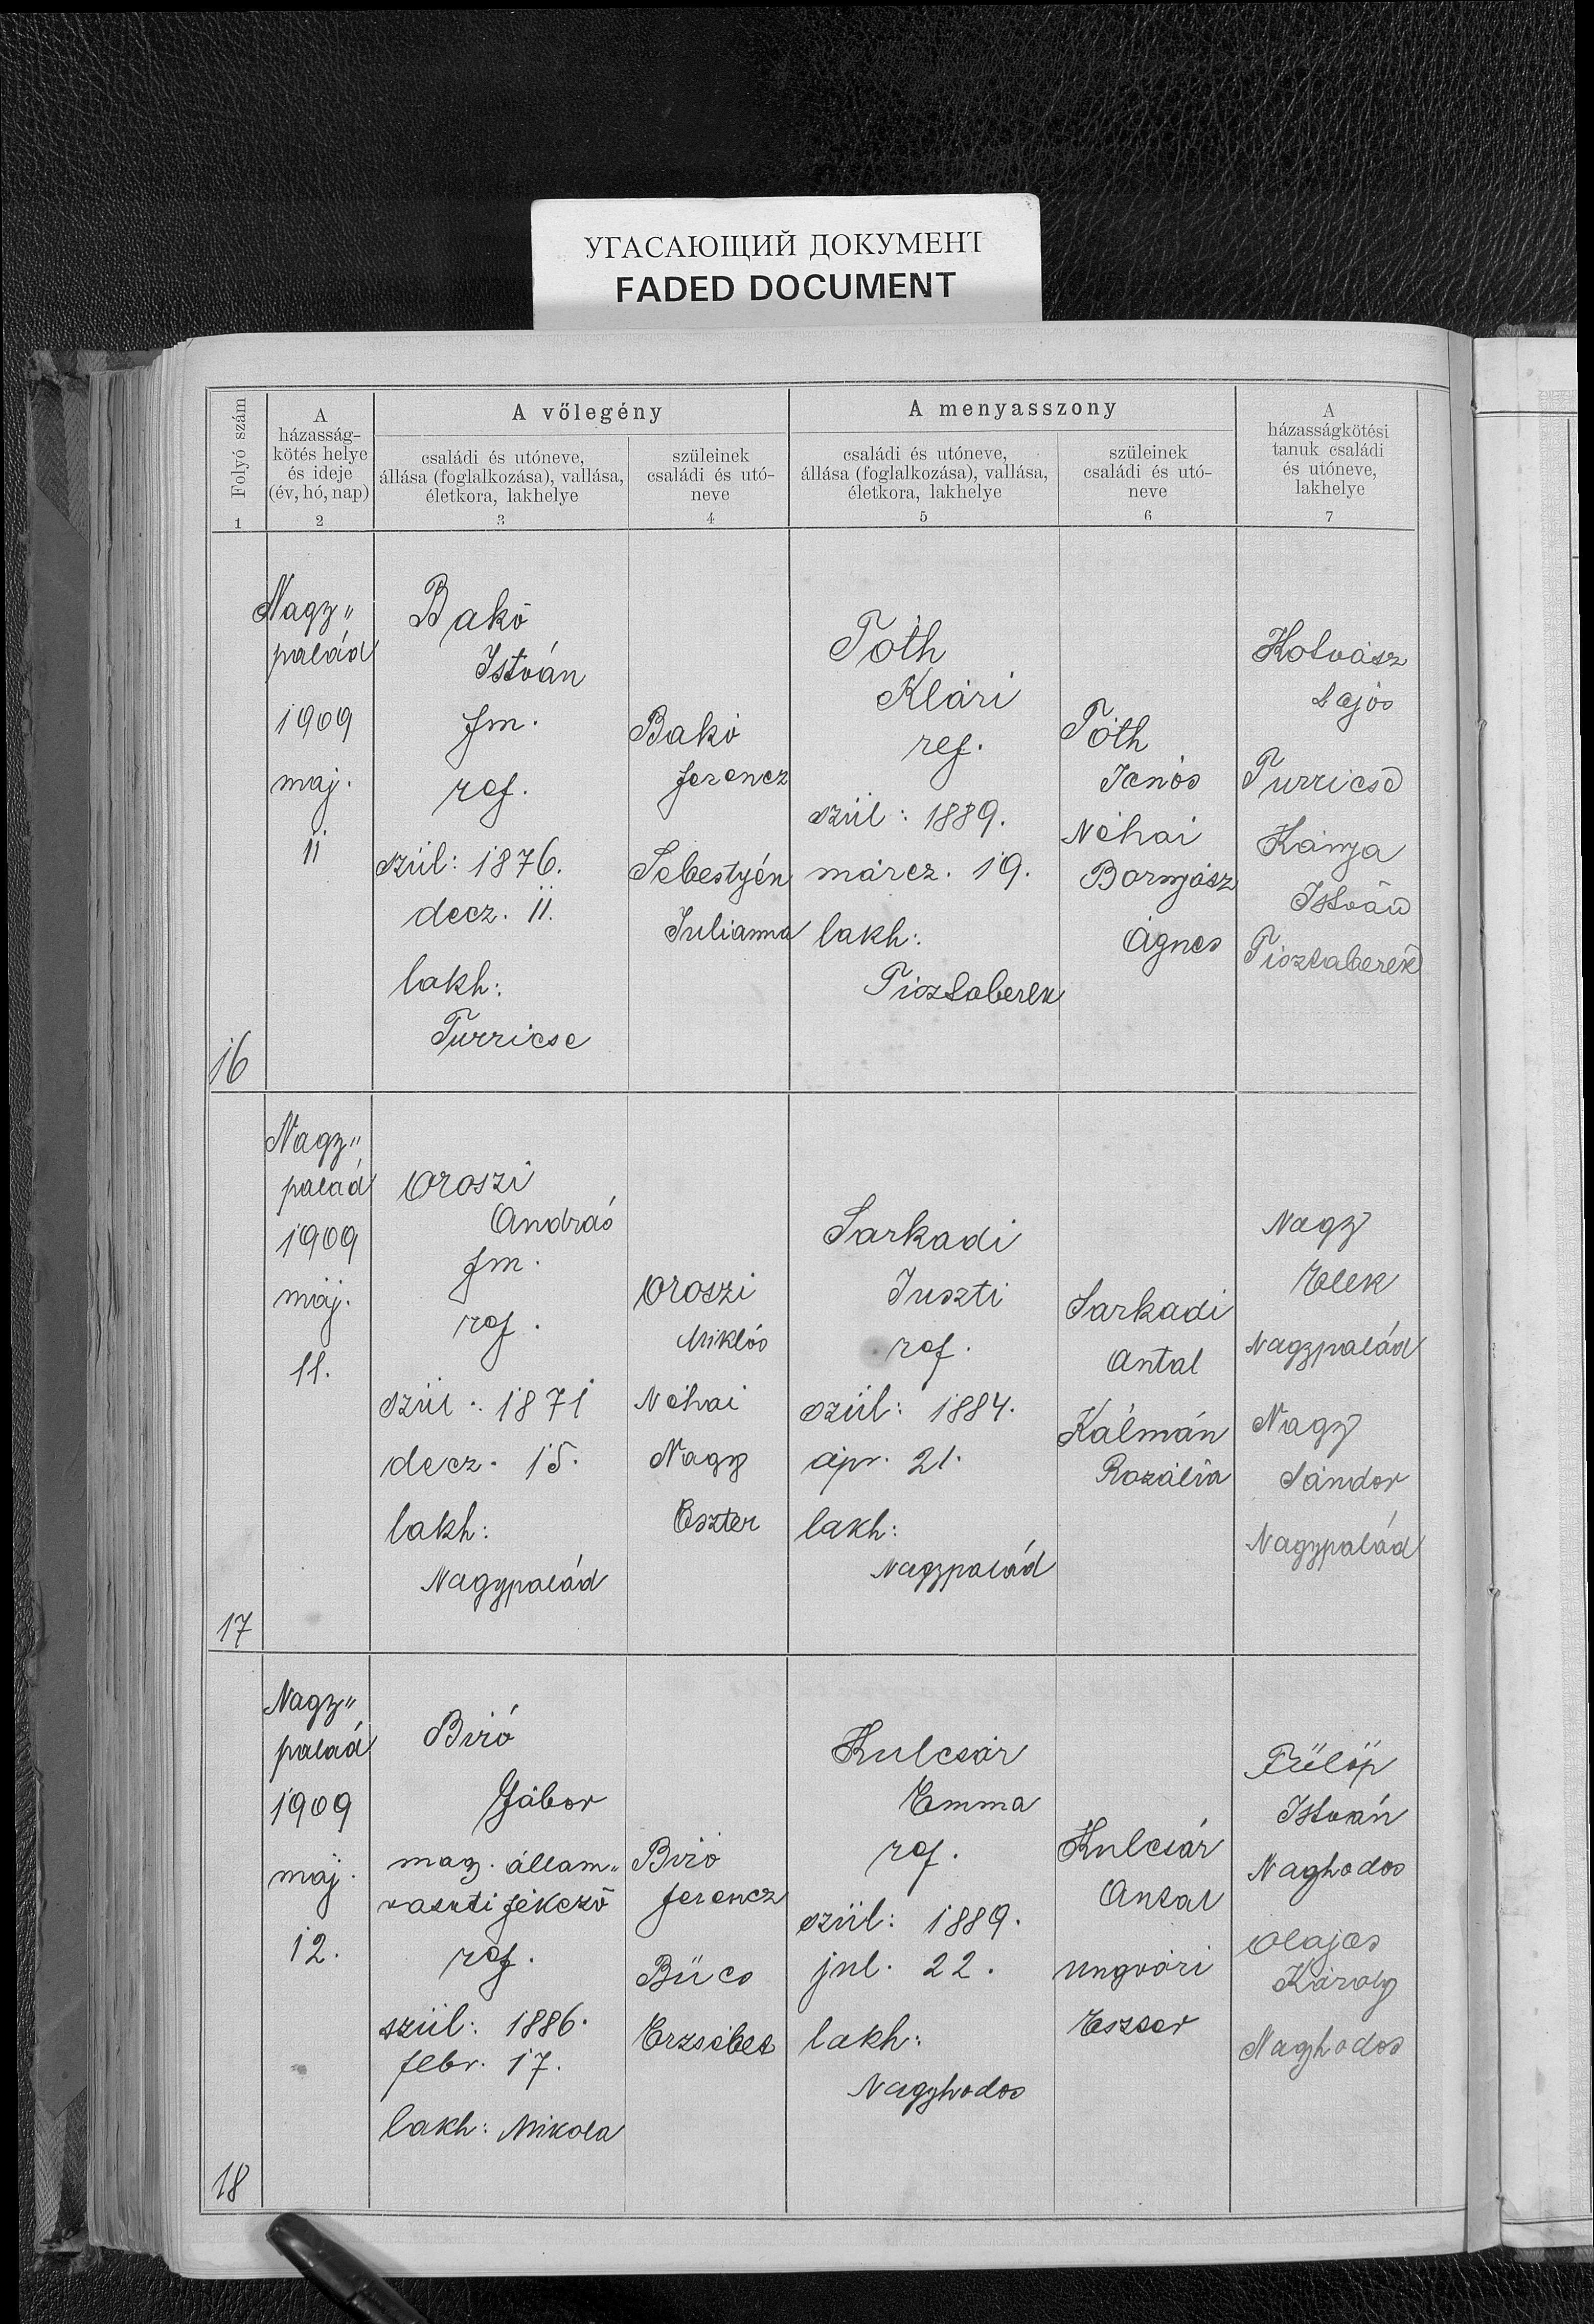 УГАСАЮЩИЙ ДОКУМЕНТ
FADED DOCUMENT
Folyó szám
1
A
házasság-
kötés helye
és ideje
(év, hó, nap)
2
A vőlegény
családi és utóneve,
állása (foglalkozása), vallása,
életkora, lakhelye
3
szüleinek
családi és utó-
neve
4
A menyasszony
családi és utóneve,
állása (foglalkozása), vallása,
életkora, lakhelye
5
szüleinek
családi és utó-
neve
6
A
házasságkötési
tanuk családi
és utóneve,
lakhelye
7
16
Nagy"
palád
1909
maj.
11
Bakó
István
fm.
ref.
szül: 1876.
decz. 11.
lakh:
Turricse
Bakó
Ferencz
Sebestyén
Julianna
Tóth
Klári
ref.
szül: 1889.
márcz. 19.
lakh:
Tisztaberek
Tóth
János
Néhai
Bornyász
Ágnes
Lajos
Turricse
Kánya
István
Tisztaberek
17
Nagy"
palád
1909
máj.
11.
Oroszi
András
fm.
ref.
szül: 1871
decz. 15.
lakh:
Nagypalád
Oroszi
Miklós
Néhai
Nagy
Eszter
Sarkadi
Juszti
ref.
szül: 1884.
ápr. 21.
lakh:
Nagypalád
Sarkadi
Antal
Kálmán
Rozália
Nagy
Elek
Nagypalád
Nagy
Sándor
Nagypalád
18
Nagy"
palád
1909
máj.
12.
Biró
Gábor
mag. állam"
vasuti fékező
ref.
szül: 1886.
febr. 17.
lakh: Mikola
Biró
Ferencz
Erzsébet
Kulcsár
Emma
ref.
szül: 1889.
jul. 22.
lakh:
Nagyhodos
Kulcsár
Antal
Ungvári
Eszter
Fülöp
István
Naghodos
Olajos
Károly
Naghodos